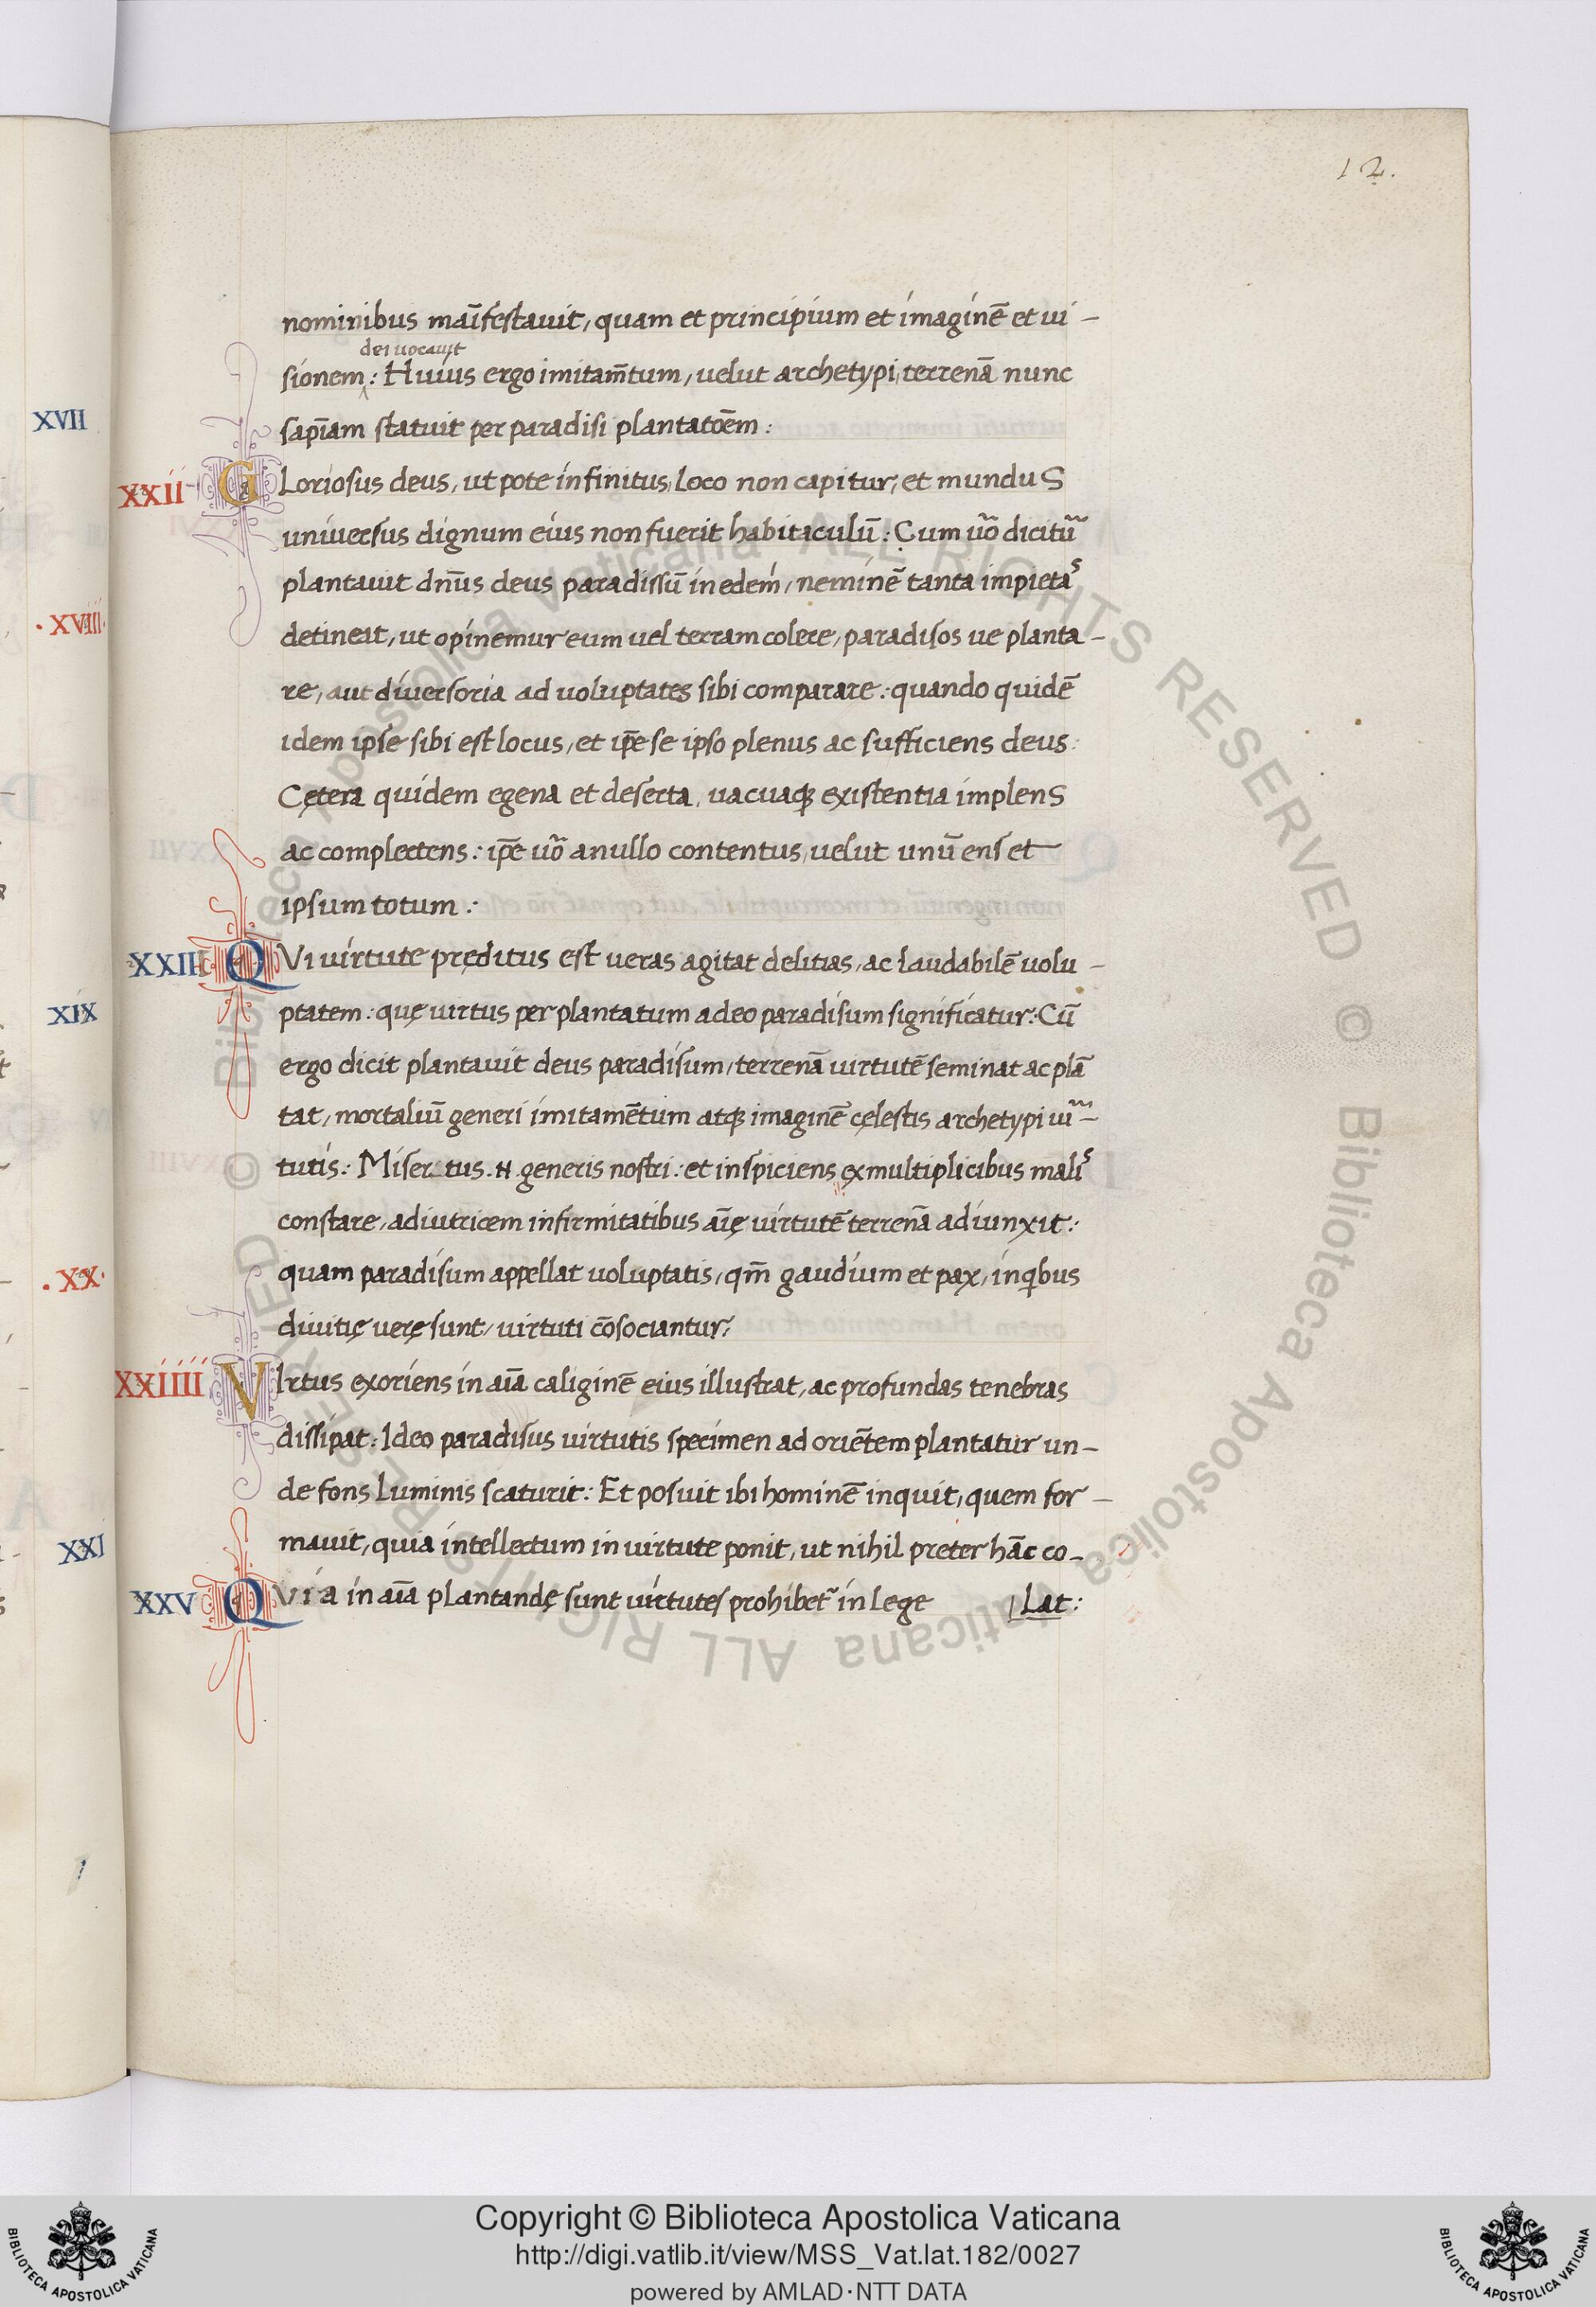 12.
nominibus maīfestauit, quam et principium et imaginē et ui–
dei uocauit
sionem: Huius ergo imitam̄tum, uelut archetypi, terrenā nunc
XVII
sap̄iam statuit per paradisi plantatōem:
XXII GLoriosus deus, ut pote infinitus, loco non capitur, et munduS
uniuersus dignum eius non fuerit habitaculū: Cum uo᷈ dicitu᷈
plantauit dn̄us deus paradissū in edem, neminē tanta impietas
XVIII
detineat, ut opinemur eum uel terram colere, paradisos ue planta–
re, aut diuersoria ad uoluptates sibi comparare: quando quidē
idem ipse sibi est locus, et ip̄e se ipso plenus ac sufficiens deus:
Cętera quidem egena et deserta, uacuaqꝫ existentia implenS
ac complectens: ip̄e uo᷈ a nullo contentus, uelut unū ens et
ipsum totum:
XXIII QVi uirtute pręditus est ueras agitat delitias, ac laudabilē uolu–
XIX
ptatem: quę uirtus per plantatum a deo paradisum significatur: Cū
ergo dicit plantauit deus paradisum, terrenā uirtutē seminat ac plā
tat, mortaliū generi imitamētum atqꝫ imaginē cęlestis archetypi ui᷈–
tutis: Misertus .N. generis nostri: et inspiciens ex multiplicibus malis
constare, adiutricem infirmitatibus aīę uirtutē terrenā adiunxit:
XX
quam paradisum appellat uoluptatis, qm̄ gaudium et pax, in qbus
diuitię uerę sunt, uirtuti cōsociantur:
XXIIII VIrtus exoriens in aīa caliginē eius illustrat, ac profundas tenebras
dissipat: Ideo paradisus uirtutis specimen ad oriētem plantatur un–
de fons luminis scaturit: Et posuit ibi hominē inquit, quem for–
XXI
mauit, quia intellectum in uirtute ponit, ut nihil preter hāc co–
XXV QVia in aīa plantandę sunt uirtutes prohibet᷈ in lege | Lat:
Copyright © Biblioteca Apostolica Vaticana
http://digi.vatlib.it/view/MSS_Vat.lat.182/0027
powered by AMLAD·NTT DATA
BIBLIOTECA APOSTOLICA VATICANA
BIBLIOTECA APOSTOLICA VATICANA